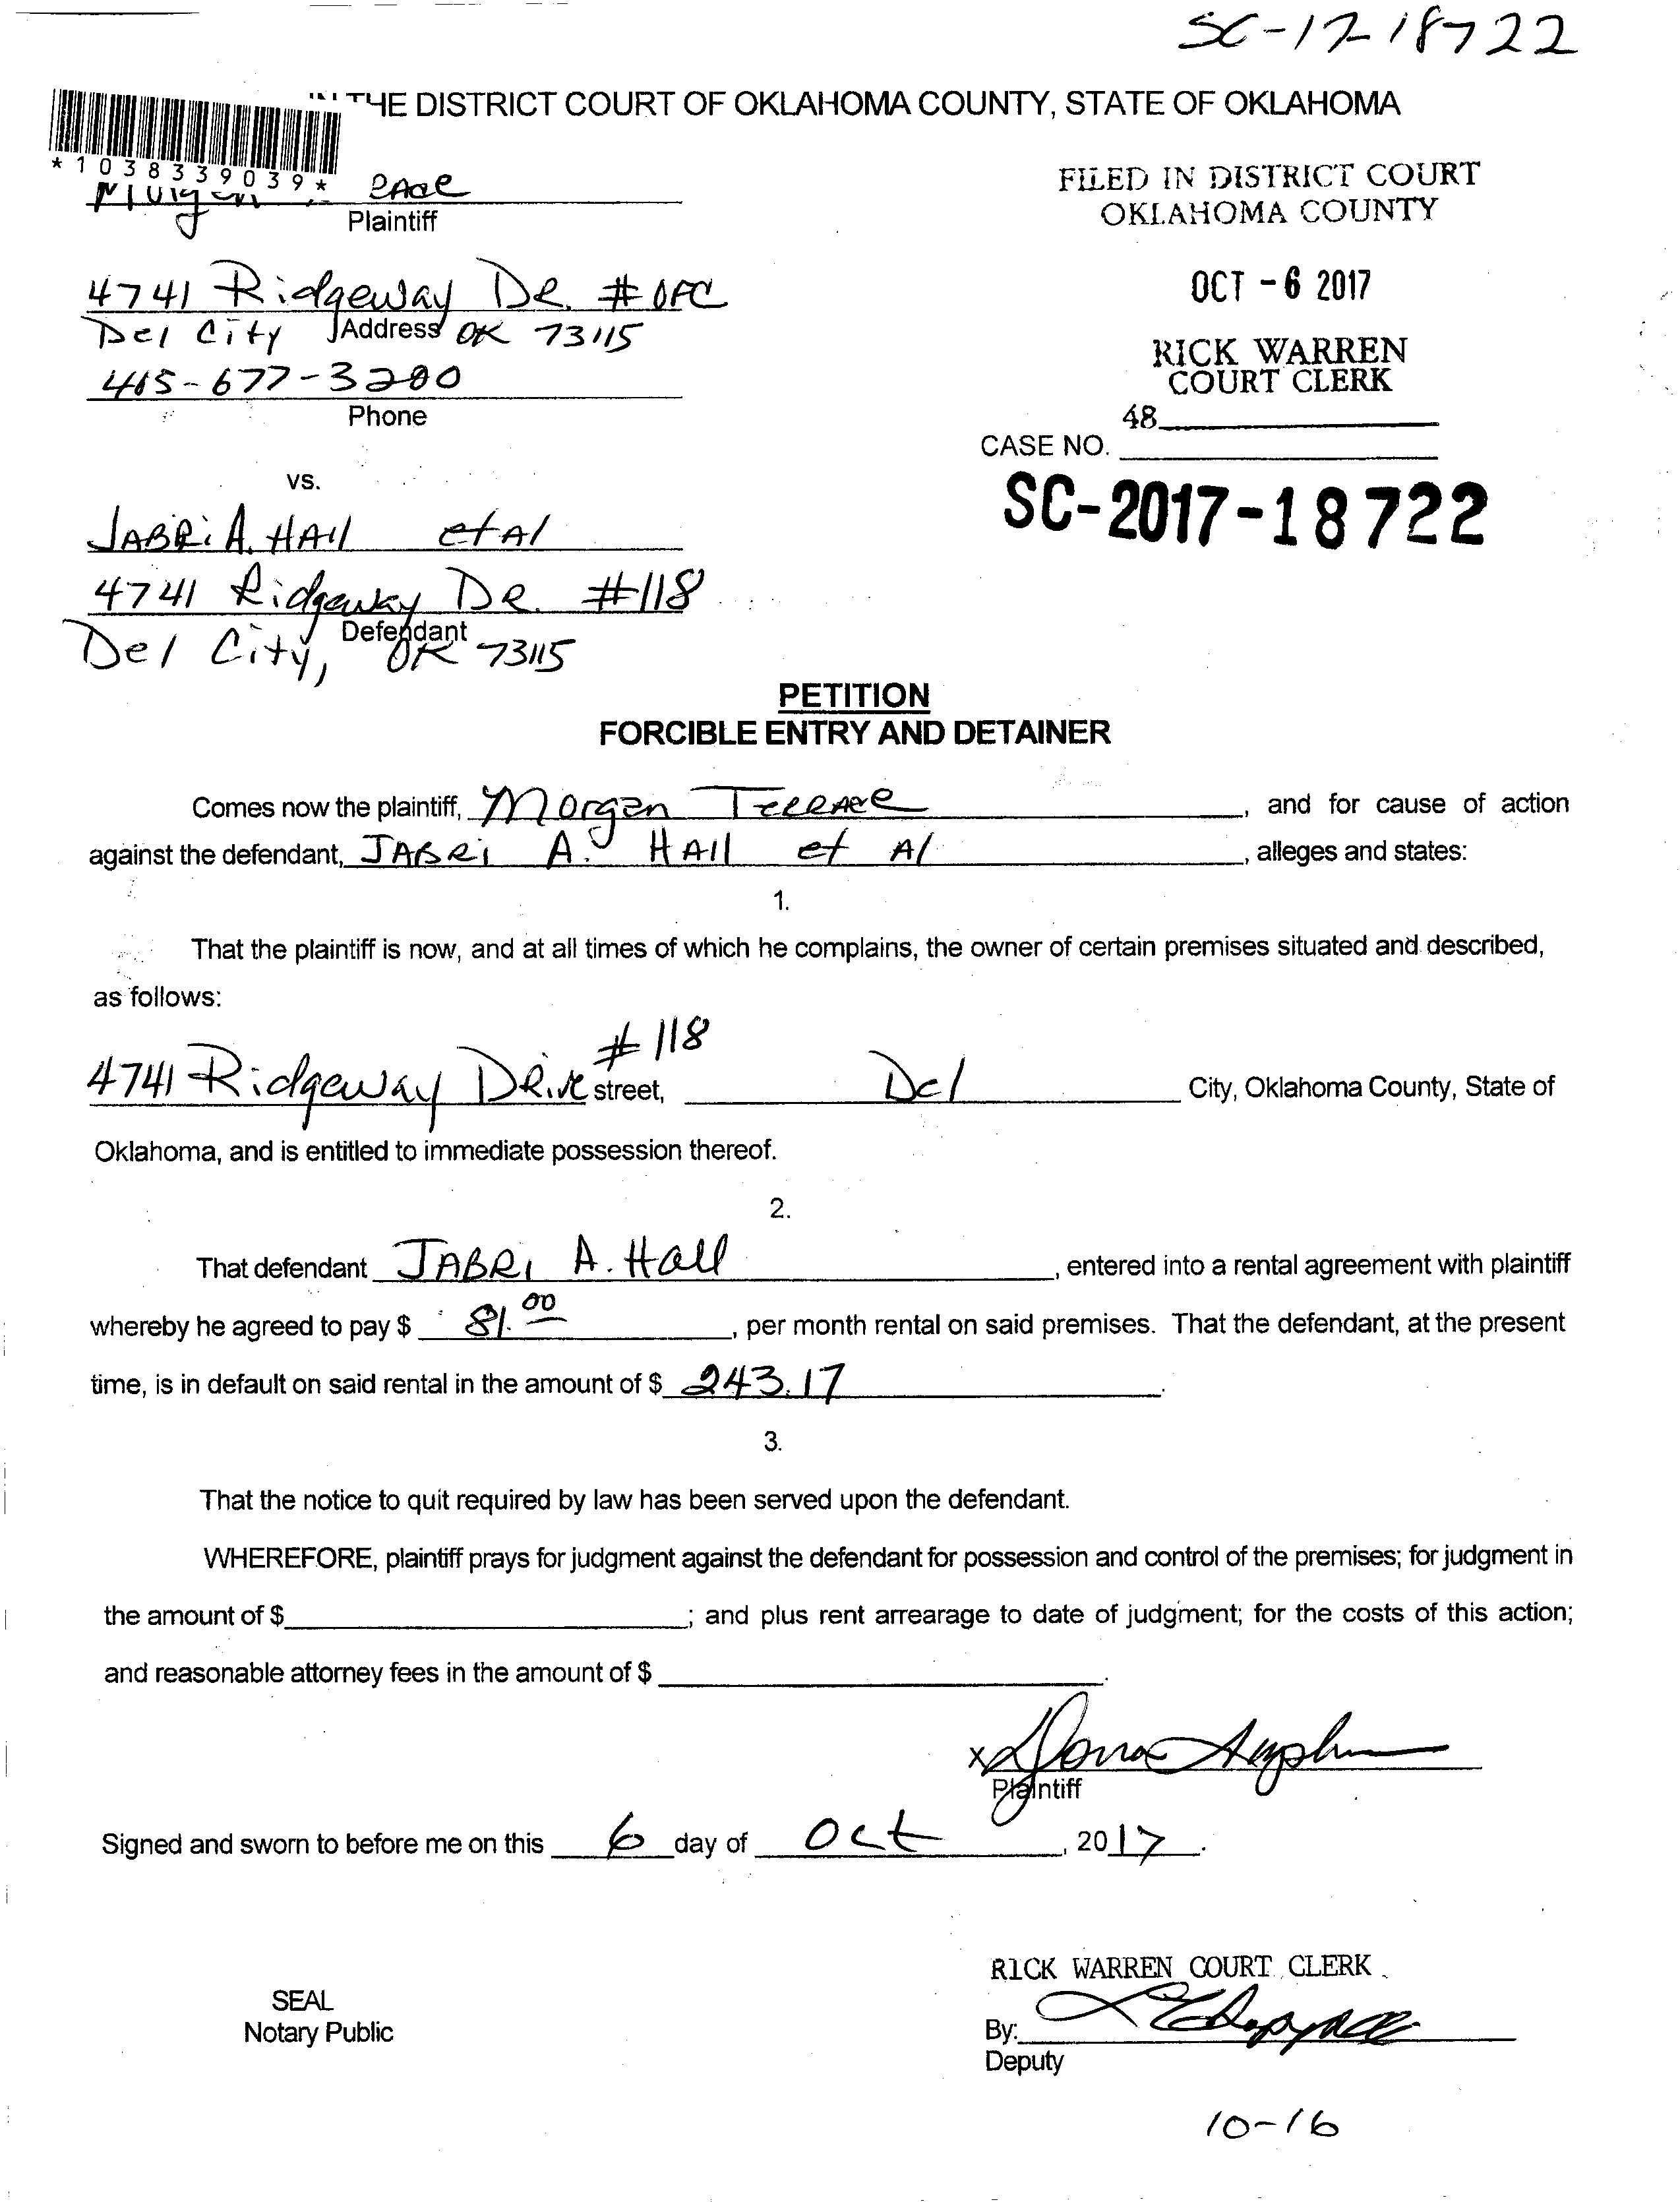 SC-17-18722
THE DISTRICT COURT OF OKLAHOMA COUNTY, STATE OF OKLAHOMA
*1038339039*
Plaintiff
FILED IN DISTRICT COURT
OKLAHOMA COUNTY
OCT -6 2017
RICK WARREN
COURT CLERK
48
4741 Ridgeway DR. # OFC
Address
Del City OK 73115
405-677-3200
Phone
CASE NO.
SC-2017-18722
vs.
JABRi A. HAll et Al
4741 Ridgeway DR. #118
Defendant
Del City, OK 73115
PETITION
FORCIBLE ENTRY AND DETAINER
Comes now the plaintiff, Morgan Terrace, and for cause of action
against the defendant, JABRi A. HAll et Al, alleges and states:
1.
That the plaintiff is now, and at all times of which he complains, the owner of certain premises situated and described,
as follows:
4741 Ridgeway DRive #118 street, Del City, Oklahoma County, State of
Oklahoma, and is entitled to immediate possession thereof.
2.
That defendant JABRi A. Hall, entered into a rental agreement with plaintiff
whereby he agreed to pay $ 81.00, per month rental on said premises. That the defendant, at the present
time, is in default on said rental in the amount of $ 243.17.
3.
That the notice to quit required by law has been served upon the defendant.
WHEREFORE, plaintiff prays for judgment against the defendant for possession and control of the premises; for judgment in
the amount of $; and plus rent arrearage to date of judgment; for the costs of this action;
and reasonable attorney fees in the amount of $.
x
Plaintiff
Signed and sworn to before me on this 6 day of Oct, 2017.
SEAL
Notary Public
RICK WARREN COURT CLERK
By:
Deputy
10-16